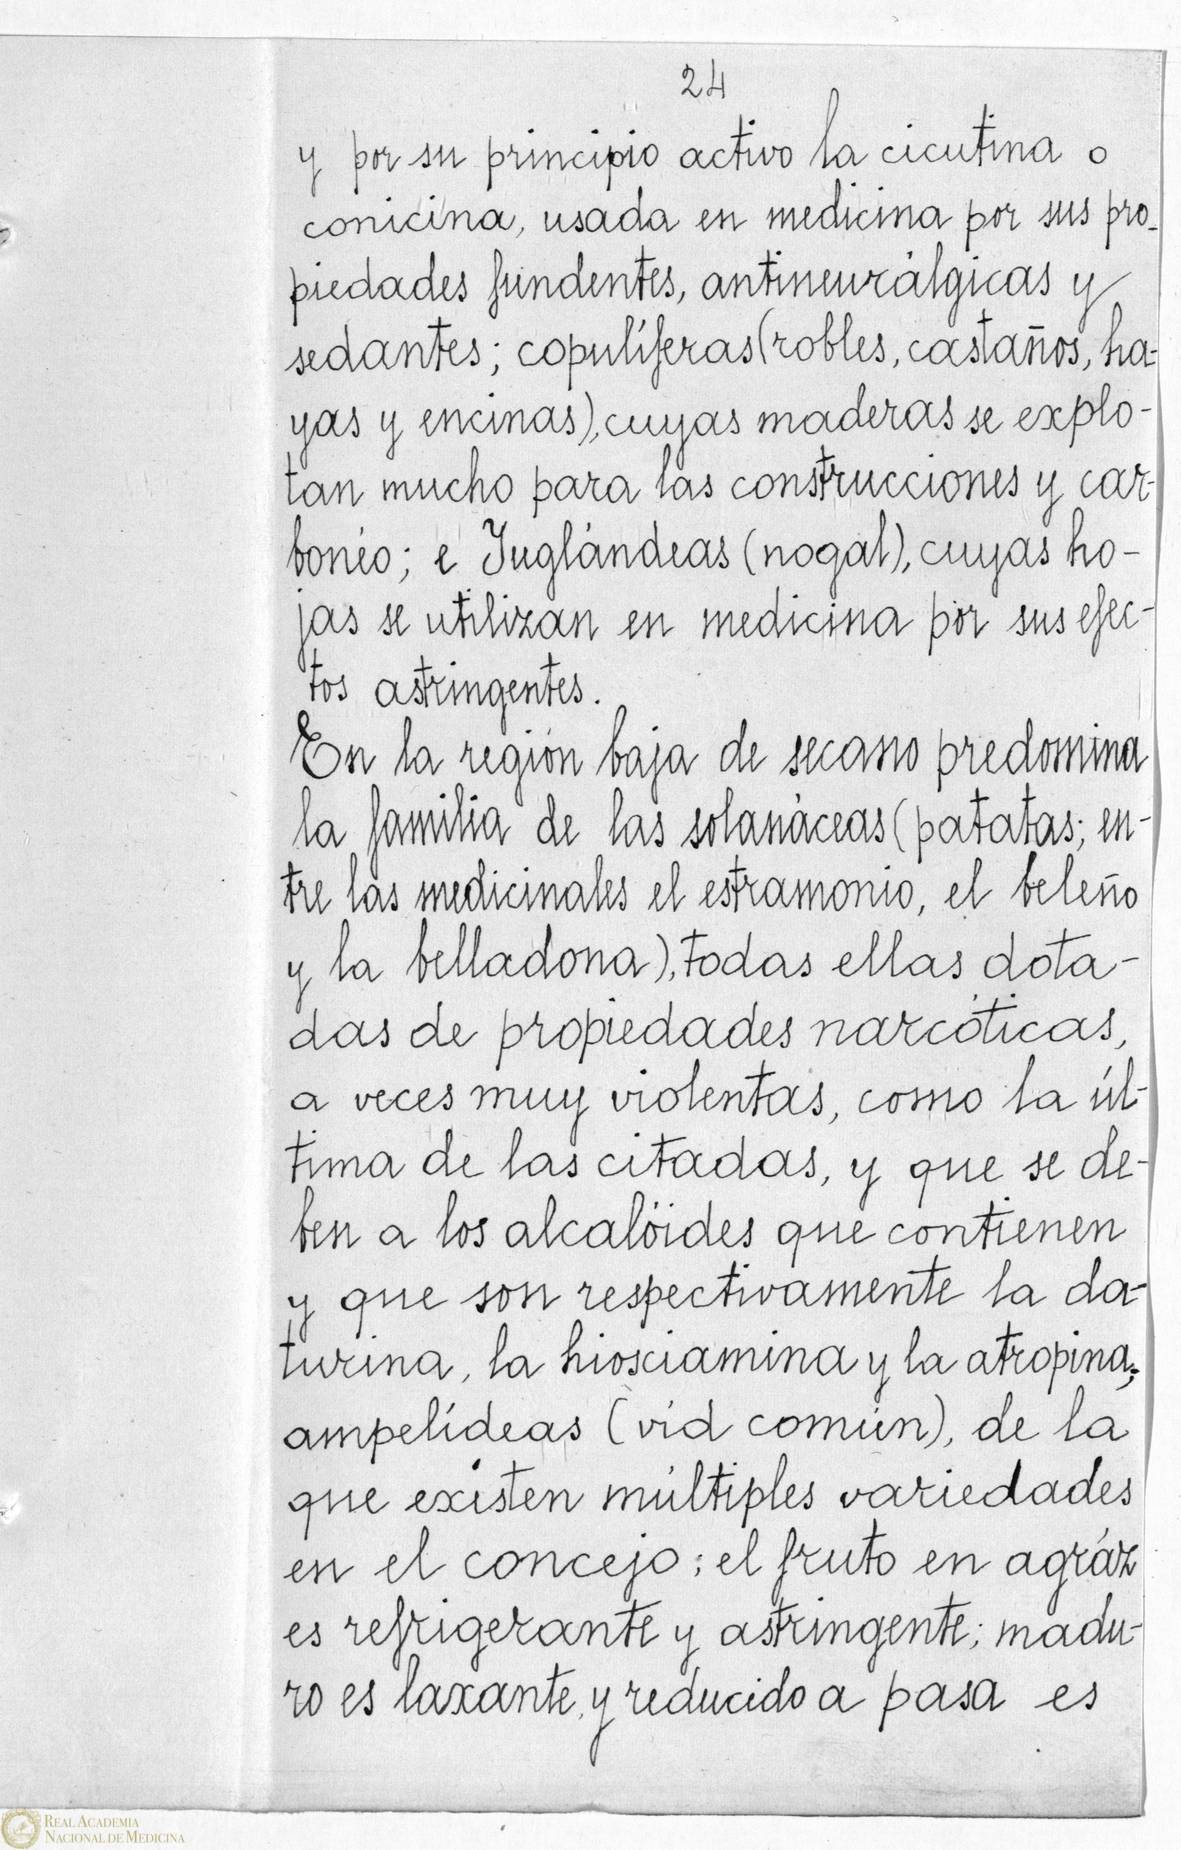 24
y por su principio activo la cicutina o
conicina, usada en medicina por sus pro-
piedades fundentes, antineurálgicas y
sedantes; copulíferas (robles, castaños, ha-
yas y encinas), cuyas maderas se explo-
tan mucho para las construcciones y car-
bonéo; e Iuglándeas (nogal), cuyas ho-
jas se utilizan en medicina por sus efec-
tos astringentes.
En la región baja de secano predomina
la familia de las solanáceas (patatas; en-
tre las medicinales el estramonio, el beleño
y la belladona), todas ellas dota-
das de propiedades narcóticas,
a veces muy violentas, como la úl-
tima de las citadas, y que se de-
ben a los alcalóides que contienen
y que son respectivamente la da-
turina, la hiosciamina y la atropina;
ampelídeas (vid común), de la
que existen múltiples variedades
en el concejo; el fruto en agráz
es refrigerante y astringente; madu-
ro es laxante, y reducido a pasa es
REAL ACADEMIA
NACIONAL DE MEDICINA